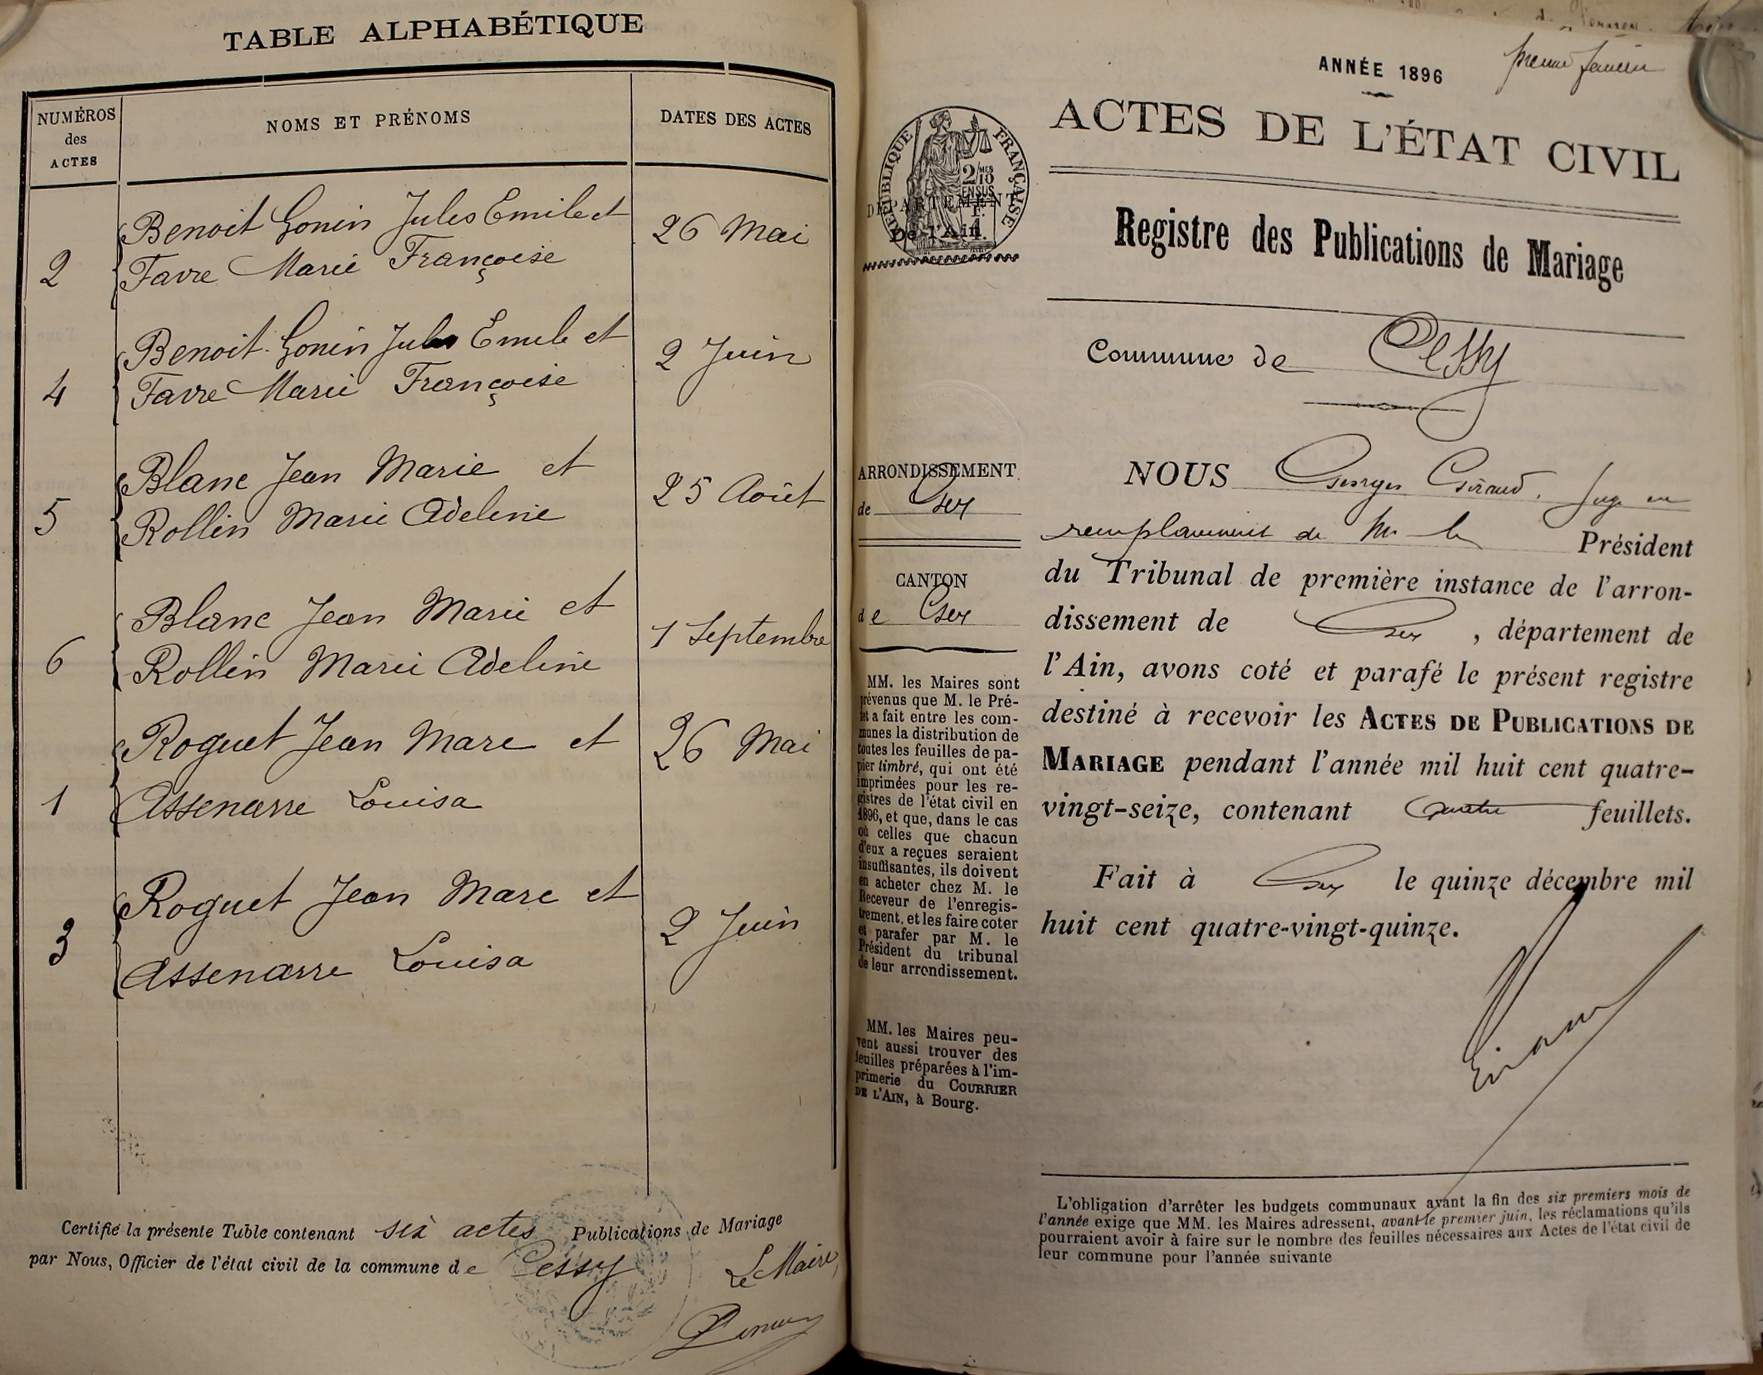 TABLE ALPHABÉTIQUE
NUMÉROS
des
ACTES
NOMS ET PRÉNOMS
DATES DES ACTES
2
Benoit Gonin Jules Emile et
Favre Marie Françoise
26 Mai
4
Benoit Gonin Jules Emile et
Favre Marie Françoise
2 Juin
5
Blanc Jean Marie et
Rollin Marie Adeline
25 Août
6
Blanc Jean Marie et
Rollin Marie Adeline
1 Septembre
1
Roguet Jean Marc et
Assenarre Louisa
26 Mai
3
Roguet Jean Marc et
Assenarre Louisa
2 Juin
Certifié la présente Table contenant six actes Publications de Mariage
par Nous, Officier de l'état civil de la commune de Cessy
Le Maire,
ANNÉE 1896
ACTES DE L'ÉTAT CIVIL
RÉPUBLIQUE FRANÇAISE
2/10MES
EN SUS
DÉPARTEMENT
De l'Ain.
Registre des Publications de Mariage
Commune de Cessy
ARRONDISSEMENT
de Gex
CANTON
de Gex
MM. les Maires sont
prévenus que M. le Pré-
fet a fait entre les com-
munes la distribution de
toutes les feuilles de pa-
pier timbré, qui ont été
imprimées pour les re-
gistres de l'état civil en
1896, et que, dans le cas
où celles que chacun
d'eux a reçues seraient
insuffisantes, ils doivent
en acheter chez M. le
Receveur de l'enregis-
trement, et les faire coter
et parafer par M. le
Président du tribunal
de leur arrondissement.
MM. les Maires peu-
vent aussi trouver des
feuilles préparées à l'im-
primerie du COURRIER
DE L'AIN, à Bourg.
NOUS Georges Giraud, Juge en
remplacement de Mr le Président
du Tribunal de première instance de l'arron-
dissement de Gex, département de
l'Ain, avons coté et parafé le présent registre
destiné à recevoir les ACTES DE PUBLICATIONS DE
MARIAGE pendant l'année mil huit cent quatre-
vingt-seize, contenant quatre feuillets.
Fait à Gex le quinze décembre mil
huit cent quatre-vingt-quinze.
L'obligation d'arrêter les budgets communaux avant la fin des six premiers mois de
l'année exige que MM. les Maires adressent, avant le premier juin, les réclamations qu'ils
pourraient avoir à faire sur le nombre des feuilles nécessaires aux Actes de l'état civil de
leur commune pour l'année suivante